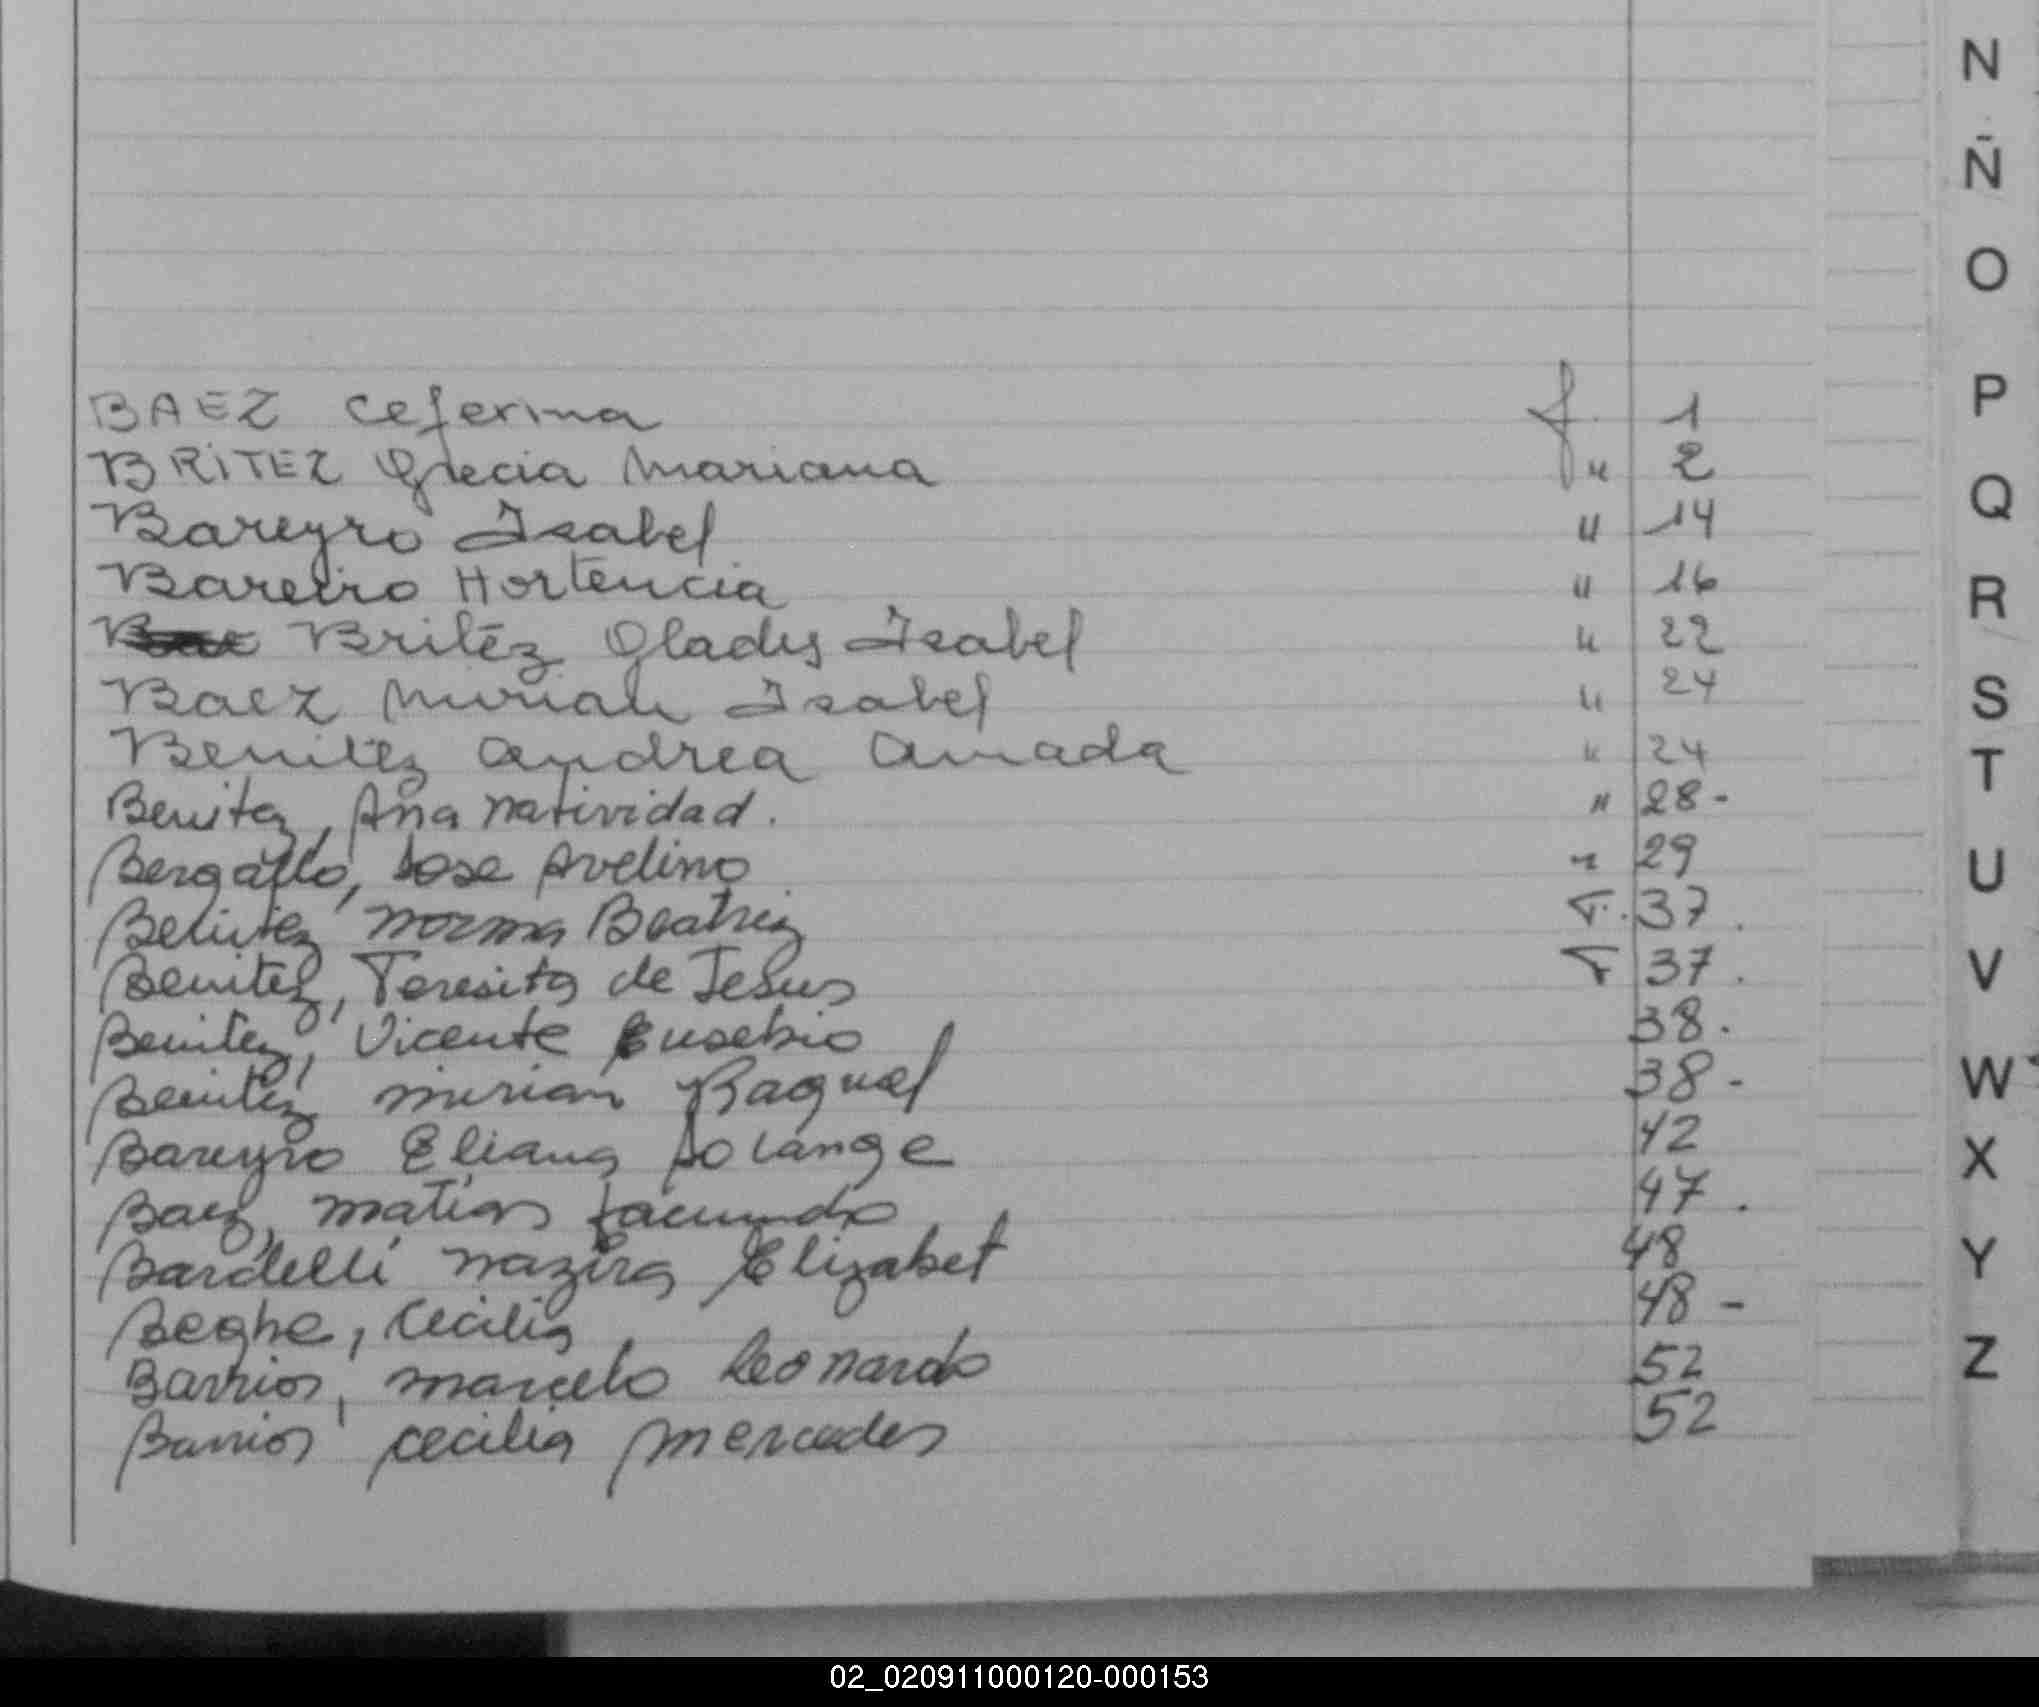 BAEZ Ceferina f. 1
BRITEZ Grecia Mariana " 2
Bareyro Isabel " 14
Bareiro Hortencia " 16
Britez Gladys Isabel " 22
Baez Mirian Isabel " 24
Benitez Andrea Amada " 24
Benitez, Ana Natividad. " 28-
Bergallo, Jose Avelino " 29
Benitez Norma Beatriz F. 37.
Benitez, Teresita de Jesus F 37.
Benitez, Vicente Eusebio 38.
Benitez Mirian Raquel 38-
Bareyro Eliana Solange 42
Baez, Matias Facundo 47.
Bardelli Nazira Elizabet 48
Beghe, Cecilia 48-
Barrios, Marcelo Leonardo 52
Barrios Cecilia Mercedes 52
N
Ñ
O
P
Q
R
S
T
U
V
W
X
Y
Z
02_020911000120-000153